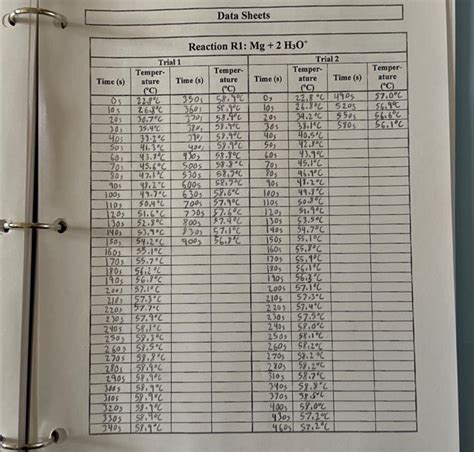 Data Sheets
Reaction R1: Mg + 2 H₃O⁺
Trial 1 Trial 2
Time (s) Temper-ature (°C) Time (s) Temper-ature (°C) Time (s) Temper-ature (°C) Time (s) Temper-ature (°C)
0s 22.8°C 350s 58.9°C 0s 22.8°C 490s 57.0°C
10s 26.8°C 360s 58.9°C 10s 26.8°C 520s 56.9°C
20s 30.7°C 370s 58.9°C 20s 34.2°C 550s 56.6°C
30s 35.4°C 380s 58.9°C 30s 38.1°C 580s 56.1°C
40s 39.2°C 390s 58.9°C 40s 40.5°C
50s 41.3°C 400s 58.9°C 50s 42.8°C
60s 43.8°C 58.8°C 60s 43.9°C
70s 45.6°C 500s 58.8°C 70s 45.1°C
80s 47.1°C 530s 58.7°C 80s 46.9°C
90s 48.2°C 600s 58.7°C 90s 48.2°C
100s 49.7°C 630s 58.6°C 100s 49.8°C
110s 50.4°C 700s 57.9°C 110s 50.8°C
120s 51.6°C 730s 57.6°C 120s 51.9°C
130s 52.8°C 800s 57.4°C 130s 53.5°C
140s 53.9°C 830s 57.1°C 140s 54.7°C
150s 54.2°C 900s 56.8°C 150s 55.1°C
160s 55.1°C 160s 55.8°C
170s 55.7°C 170s 55.9°C
180s 56.2°C 180s 56.1°C
190s 56.8°C 190s 56.3°C
200s 57.1°C 200s 57.1°C
210s 57.3°C 210s 57.3°C
220s 57.7°C 220s 57.4°C
230s 57.9°C 230s 57.5°C
240s 58.1°C 240s 58.0°C
250s 58.3°C 250s 58.1°C
260s 58.5°C 260s 58.2°C
270s 58.8°C 270s 58.2°C
280s 58.9°C 280s 58.2°C
290s 58.9°C 310s 58.7°C
300s 58.9°C 340s 58.8°C
310s 58.9°C 370s 58.5°C
320s 58.9°C 400s 58.0°C
330s 58.9°C 430s 57.2°C
340s 58.9°C 460s 57.2°C